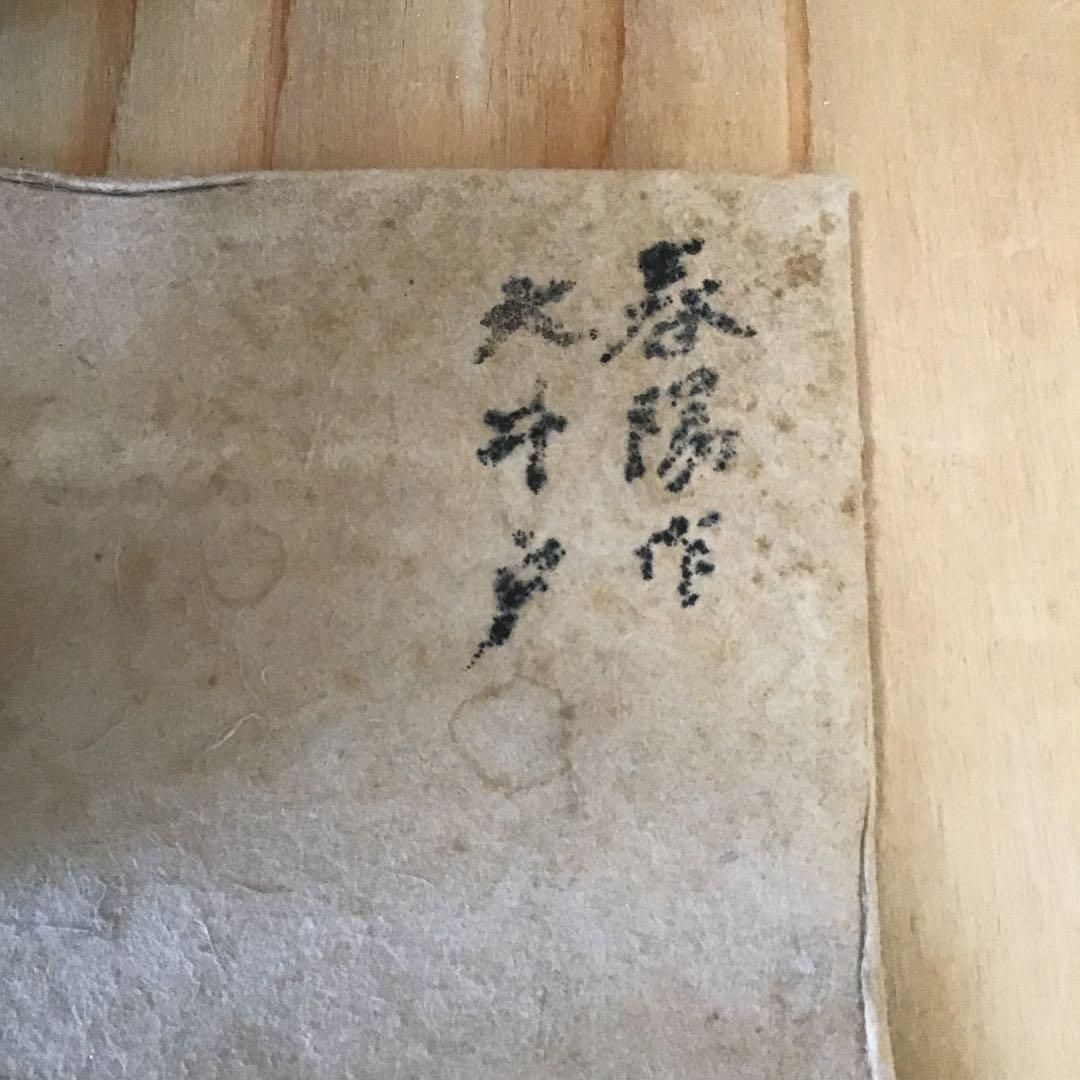 春陽作
大井戸